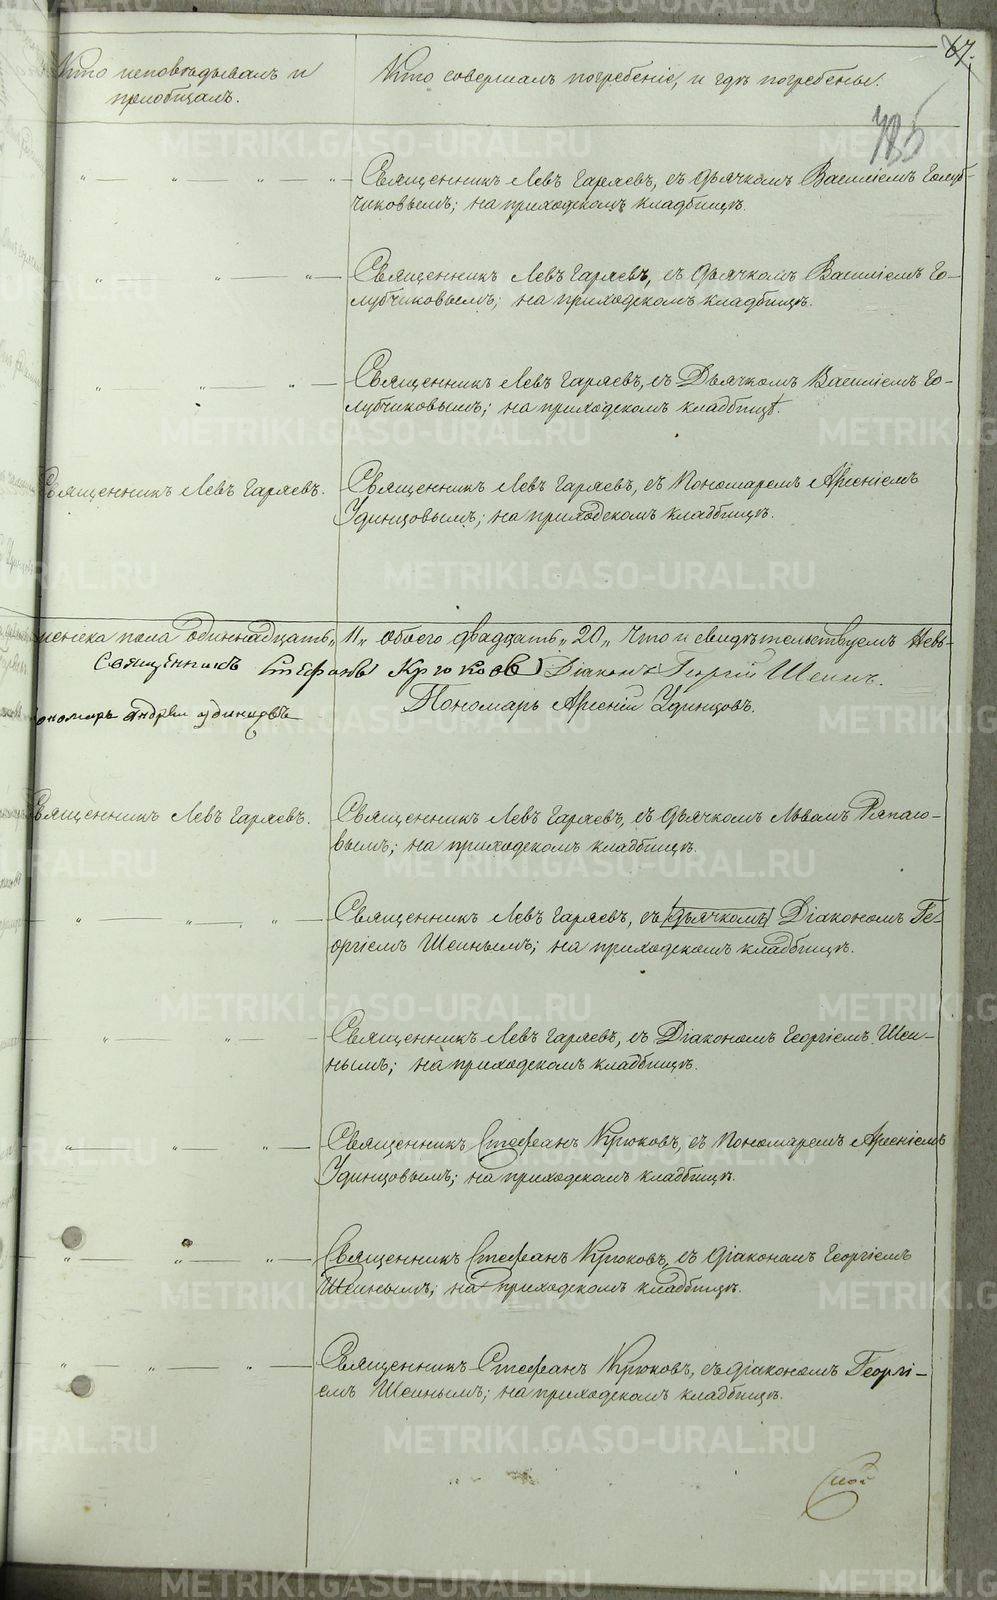 67.
785
Кто исповѣдывалъ и
пріобщалъ.
Кто совершалъ погребеніе, и гдѣ погребены.
Священникъ Левъ Гаряевъ, съ дьячкомъ Василіемъ Голуб-
чиковымъ; на приходскомъ кладбищѣ.
Священникъ Левъ Гаряевъ, съ дьячкомъ Василіемъ Го-
лубчиковымъ; на приходскомъ кладбищѣ.
Священникъ Левъ Гаряевъ, съ Дьячкомъ Василіемъ Го-
лубчиковымъ; на приходскомъ кладбищѣ.
Священникъ Левъ Гаряевъ.
Священникъ Левъ Гаряевъ, съ Пономаремъ Арсеніемъ
Удинцовымъ; на приходскомъ кладбищѣ.
женска пола одиннадцать „11„ обоего двадцать „20„ Что и свидѣтельствуемъ
Священникъ Стефанъ Крюковъ Діаконъ Георгій Шеинъ.
пономарь Андрей удинцевъ
Пономарь Арсеній Удинцовъ.
Священникъ Левъ Гаряевъ.
Священникъ Левъ Гаряевъ, съ дьячкомъ Львомъ
вымъ; на приходскомъ кладбищѣ.
Священникъ Левъ Гаряевъ, съ (дьячкомъ) Діакономъ Ге-
оргіемъ Шеинымъ; на приходскомъ кладбищѣ.
Священникъ Левъ Гаряевъ, съ Діакономъ Георгіемъ Шеи-
нымъ; на приходскомъ кладбищѣ.
Священникъ Стефанъ Крюковъ, съ Пономаремъ Арсеніемъ
Удинцовымъ; на приходскомъ кладбищѣ.
Священникъ Стефанъ Крюковъ, съ діакономъ Георгіемъ
Шеинымъ; на приходскомъ кладбищѣ.
Священникъ Стефанъ Крюковъ, съ діакономъ Георгі-
емъ Шеинымъ; на приходскомъ кладбищѣ.
METRIKI.GASO-URAL.RU